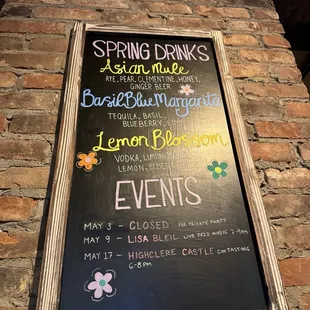 SPRING DRINKS
Asian Mule
RYE, PEAR, CLEMENTINE, HONEY,
GINGER BEER
Basil Blue Margarita
TEQUILA, BASIL,
BLUEBERRY, LIME
Lemon Blossom
VODKA,
LEMON,
EVENTS
MAY 3 - CLOSED FOR PRIVATE PARTY
MAY 9 - LISA BLEIL LIVE JAZZ MUSIC 7-9PM
MAY 17 - HIGHCLERE CASTLE GIN TASTING
6-8PM